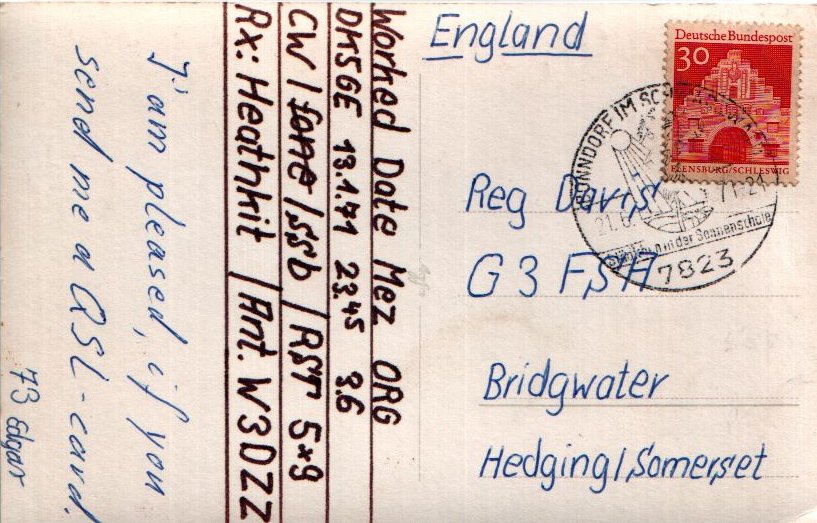 Worked Date Mez QRG
DM5GE 13.1.71 23.45 3.6
CW / fone / ssb / RST 5 x 9
Rx: Heathkit / Ant. W3DZZ
I'am pleased, if you
send me a QSL-card.
73 Edgar
England
Deutsche Bundespost
30
FLENSBURG/SCHLESWIG
BONNDORF IM
in der Sonnenschule
7823
Reg Davis
G3FSA
Bridgwater
Hedging/Somerset